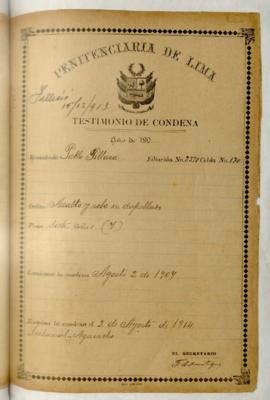 PENITENCIARIA DE LIMA
Falleció
15/12/913.
TESTIMONIO DE CONDENA
de 190
Rematado Pablo Filiación No. 2370 Celda No. 130
Delito Asalto y robo en despoblado
Pena siete años (7)
Comienza la condena Agosto 2 de 1907
Termina la condena el 2 de Agosto de 1914
Tribunal, Ayacucho
EL SECRETARIO